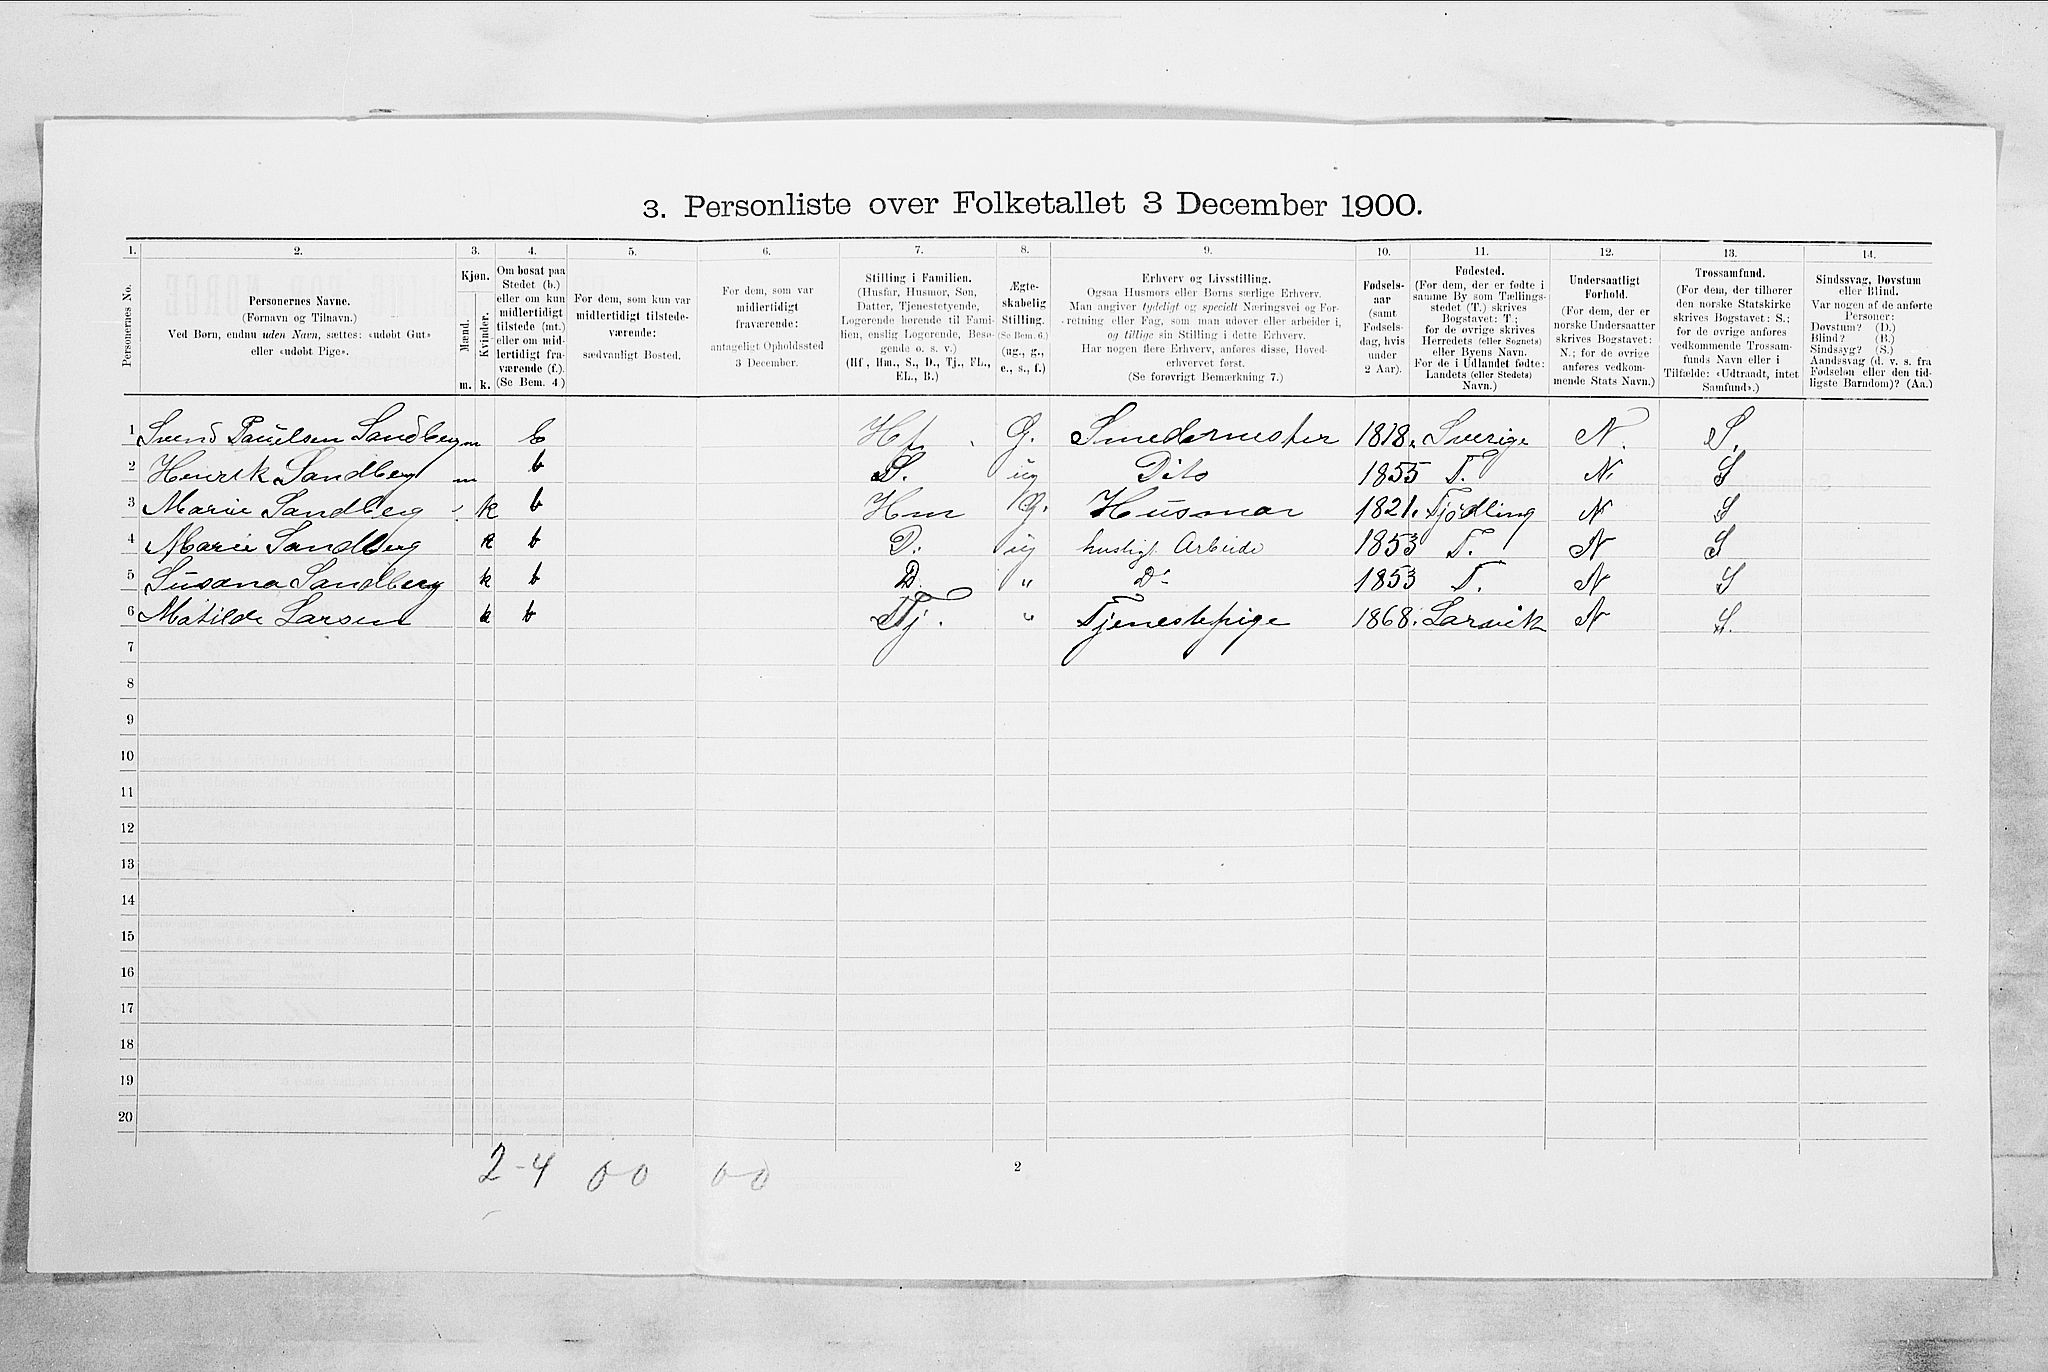 3. Personliste over Folketallet 3 December 1900.
1. 2. 3. 4. 5. 6. 7. 8. 9. 10. 11. 12. 13. 14.
Personernes No.
Personernes Navne.
(Fornavn og Tilnavn.)
Ved Børn, endnu uden Navn, sættes: «udøbt Gut»
eller «udøbt Pige».
Kjøn.
Mænd.
Kvinder.
m. k.
Om bosat paa
Stedet (b.)
eller om kun
midlertidigt
tilstede (mt.)
eller om mid-
lertidigt fra-
værende (f.).
(Se Bem. 4.)
For dem, som kun var
midlertidigt tilstede-
værende:
sædvanligt Bosted.
For dem, som var
midlertidigt
fraværende:
antageligt Opholdssted
3 December.
Stilling i Familien.
(Husfar, Husmor, Søn,
Datter, Tjenestetyende,
Logerende hørende til Fami-
lien, enslig Logerende, Besø-
gende o. s. v.)
(Hf., Hm., S., D., Tj., FL.,
EL., B.)
Ægte-
skabelig
Stilling.
(Se Bem. 6.)
(ug., g.,
e., s., f.)
Erhverv og Livsstilling.
Ogsaa Husmors eller Børns særlige Erhverv.
Man angiver tydeligt og specielt Næringsvei og For-
retning eller Fag, som man udøver eller arbeider i,
og tillige sin Stilling i dette Erhverv.
Har nogen flere Erhverv, anføres disse, Hoved-
erhvervet først.
(Se forøvrigt Bemærkning 7.)
Fødsels-
aar
(samt
Fødsels-
dag, hvis
under
2 Aar).
Fødested.
(For dem, der er fødte i
samme By som Tællings-
stedet (T.) skrives
Bogstavet: T.;
for de øvrige skrives
Herredets (eller Sognets)
eller Byens Navn.
For de i Udlandet fødte:
Landets (eller Stedets)
Navn.)
Undersaatligt
Forhold.
(For dem, der er
norske Undersaatter
skrives Bogstavet:
N.; for de øvrige
anføres vedkom-
mende Stats Navn.)
Trossamfund.
(For dem, der tilhører
den norske Statskirke
skrives Bogstavet: S.;
for de øvrige anføres
vedkommende Trossam-
funds Navn eller i
Tilfælde: «Udtraadt, intet
Samfund».)
Sindssvag, Døvstum
eller Blind.
Var nogen af de anførte
Personer:
Døvstum? (D.)
Blind? (B.)
Sindssyg? (S.)
Aandssvag (d. v. s. fra
Fødselen eller den tid-
ligste Barndom)? (Aa.)
1 Svend Paulsen Sandberg m b Hf. G. Smedemester 1818. Sverige N. S.
2 Henrik Sandberg m b S. ug Dito 1855 T. N. S
3 Marie Sandberg k b Hm G. Husmor 1821. Tjødling N S
4 Marie Sandberg k b D. ug husligt Arbeide 1853 T. N S
5 Susana Sandberg k b D. " Do 1853 T. N S
6 Matilde Larsen k b Tj. " Tjenestepige 1868. Larvik N S.
7
8
9
10
11
12
13
14
15
16
17
18
19
20
2-4 00 00
2